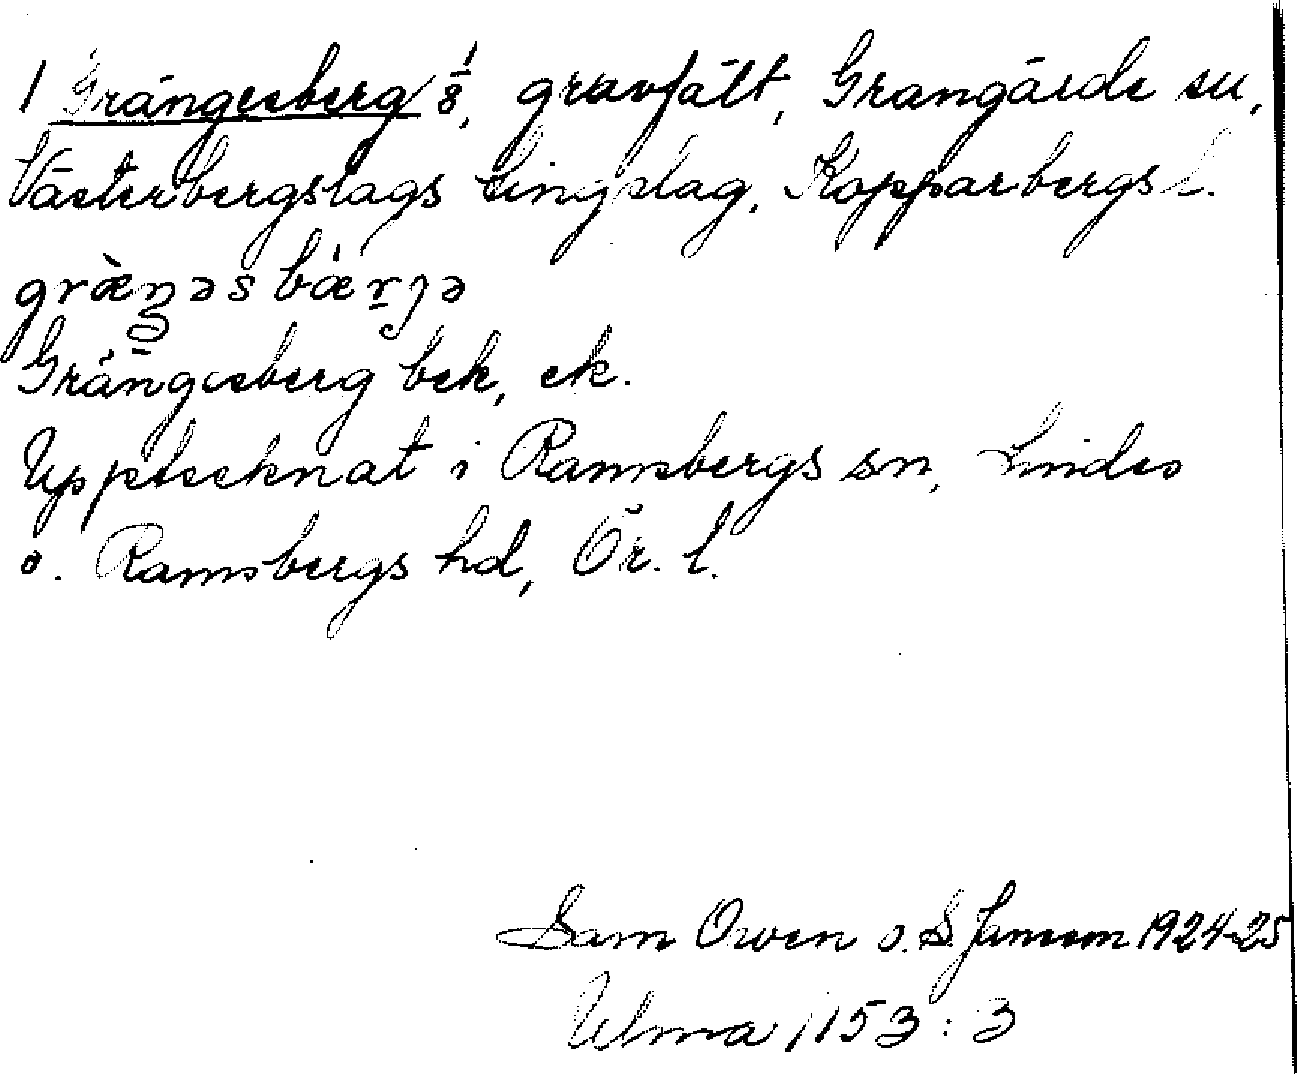 1 Grängesberg 1/8, gruvfält, Grangärde sn,
Västerbergslags tingslag, Kopparbergs l.
græ̀ŋəsbæ̀rjə
Grängesberg bek, ek.
Upptecknat i Ramsbergs sn, Lindes
o. Ramsbergs hd, Ör. l.
Sam Owen o. S. Janson 1924-25
Ulma 1153:3